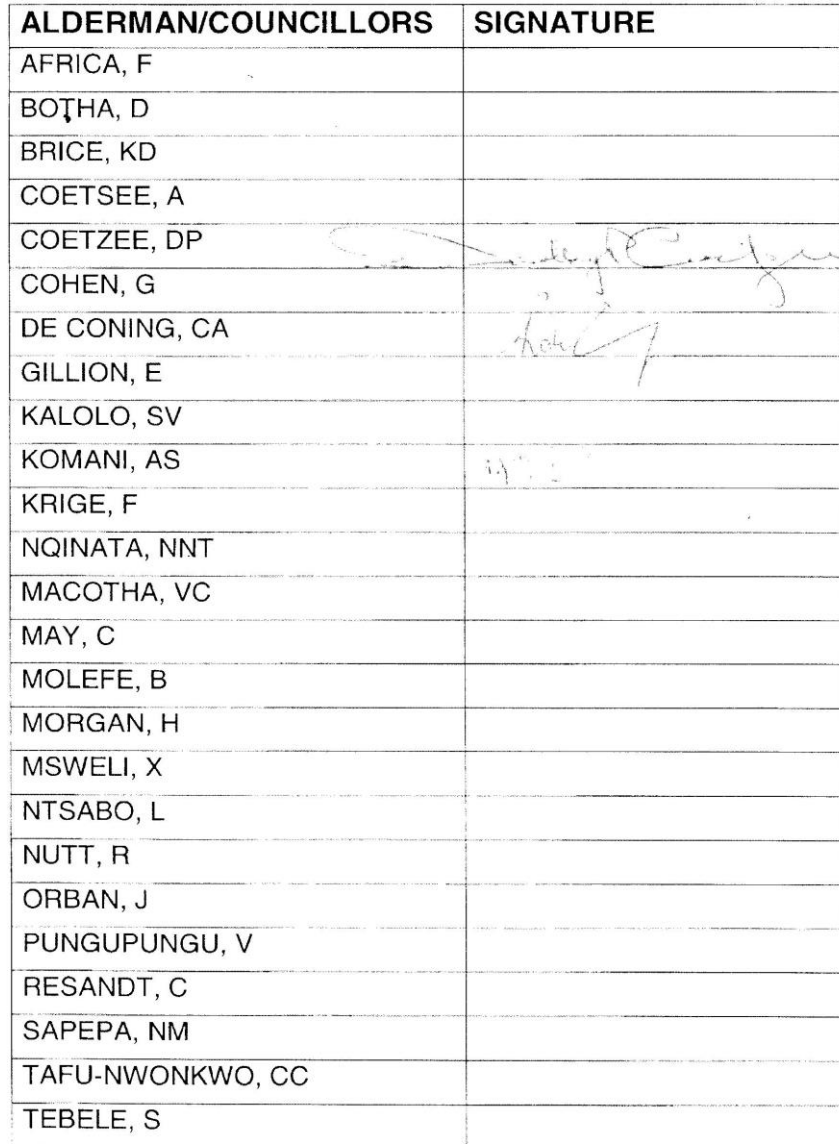 ALDERMAN/COUNCILLORS SIGNATURE
AFRICA, F
BOTHA, D
BRICE, KD
COETSEE, A
COETZEE, DP
COHEN, G
DE CONING, CA
GILLION, E
KALOLO, SV
KOMANI, AS
KRIGE, F
NQINATA, NNT
MACOTHA, VC
MAY, C
MOLEFE, B
MORGAN, H
MSWELI, X
NTSABO, L
NUTT, R
ORBAN, J
PUNGUPUNGU, V
RESANDT, C
SAPEPA, NM
TAFU-NWONKWO, CC
TEBELE, S